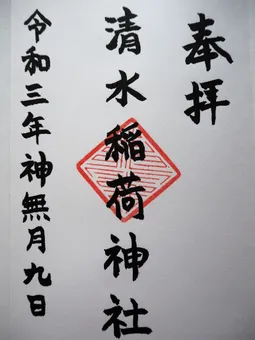 奉拝
清水稲荷神社
令和三年神無月九日